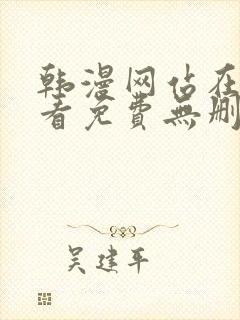 韩漫网站在
看免費無删
吴建平